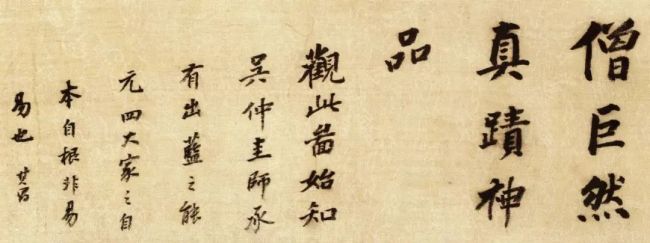 僧巨然
真蹟神
品
觀此啚始知
吳仲圭師承
有出藍之能
元四大家之自
本自根非易
易也 其昌